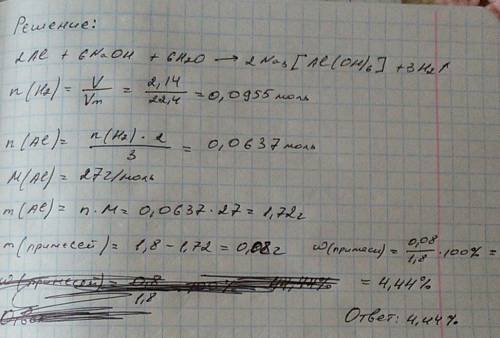 Решение:
2Al + 6NaOH + 6H2O → 2Na3[Al(OH)6] + 3H2↑
n(H2) = V/Vm = 2,14/22,4 = 0,0955 моль
n(Al) = n(H2)·2/3 = 0,0637 моль
M(Al) = 27 г/моль
m(Al) = n·M = 0,0637·27 = 1,72 г
m(примесей) = 1,8 - 1,72 = 0,08 г ω(примеси) = 0,08/1,8 · 100% =
ω(примесей) = 0,8/1,8 · 100% = 44,44% = 4,44%
Ответ Ответ: 4,44%